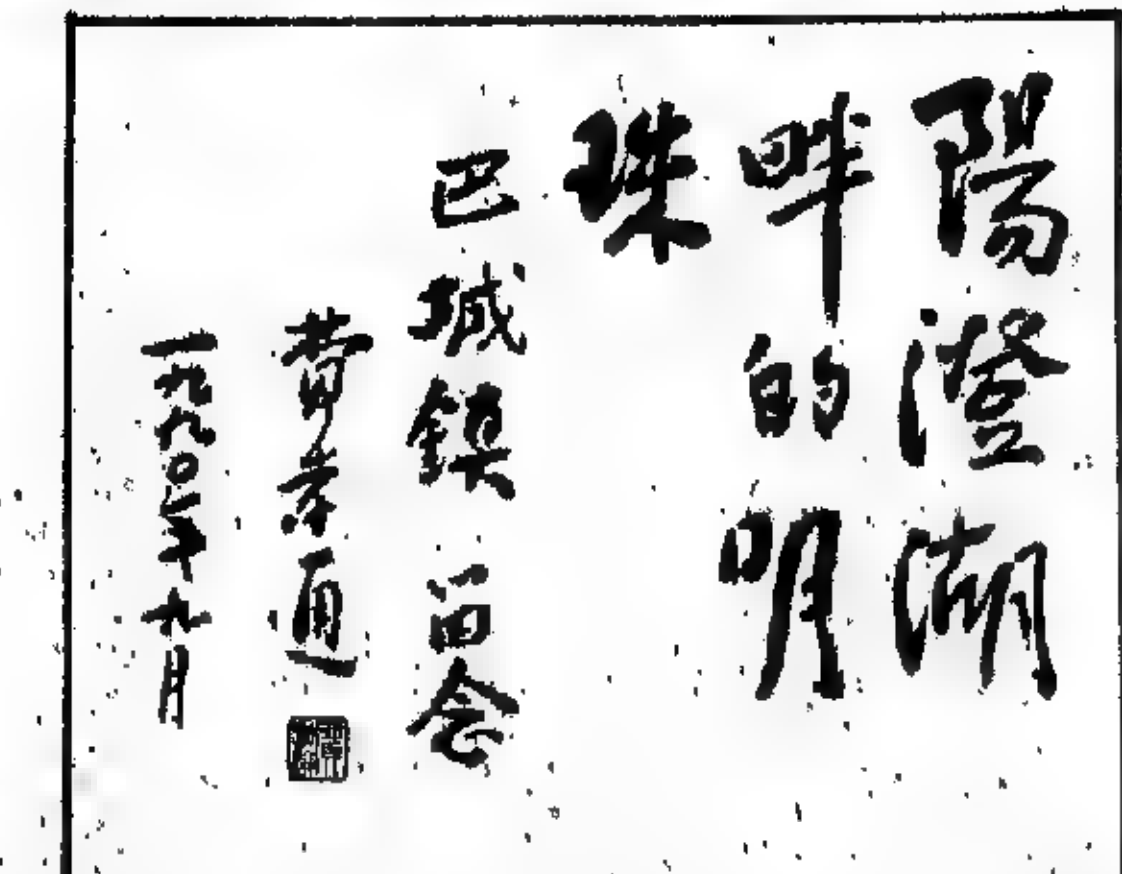 陽澄湖
畔的明
珠
巴城鎮 留念
费孝通
一九九〇年九月